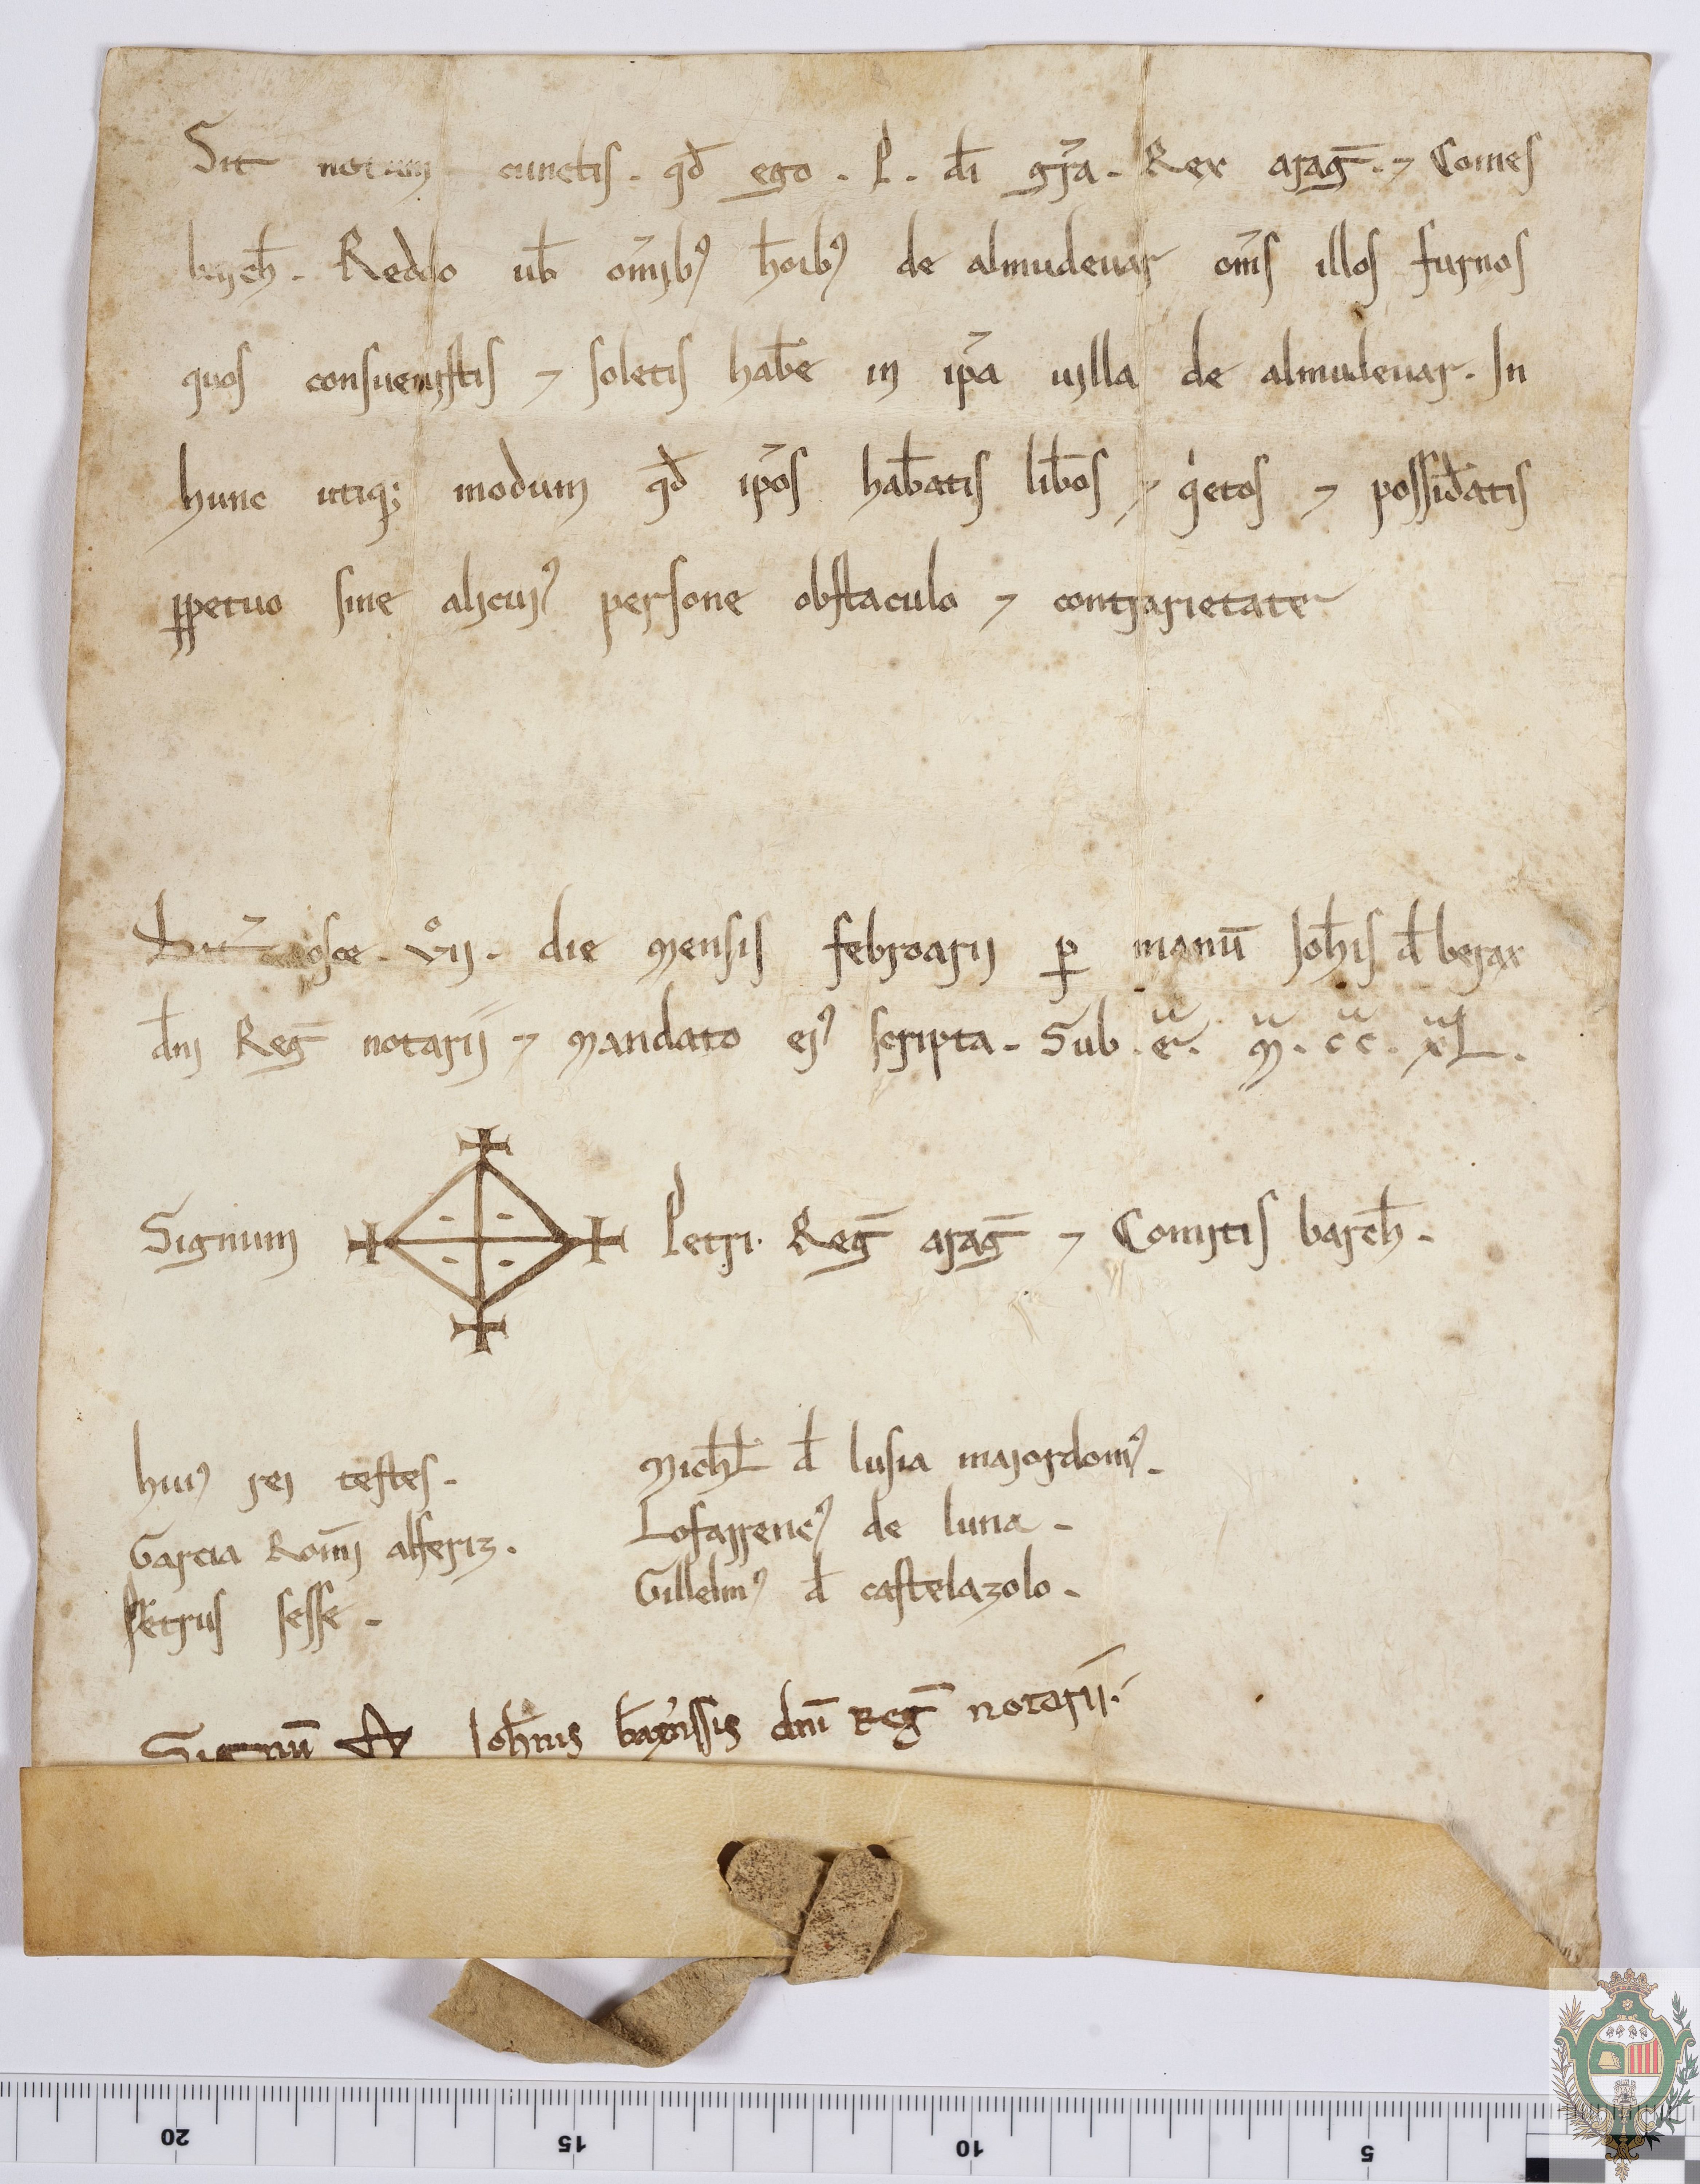 Sit notum cunctis. qd̄ ego. P. di gr̄a. Rex araḡ. ⁊ Comes
barch̄. Reddo ub̄ om̄ib᷒ hoib᷒ de almudeuar om̄s illos furnos
quos consueuistis ⁊ soletis hab̄e in ip̄a uilla de almudeuar. In
hunc utiq; modum qd̄ ip̄os hab̄atis lib̄os ⁊ qͥetos ⁊ possid̄atis
ꝑpetuo sine alicui᷒ persone obstaculo ⁊ contrarietate
Dat̄ osce. vii. die mensis febroarii ꝑ manū Joh̄is d̄ berax
dn̄i Reḡ notarii ⁊ mandato ei᷒ scripta. Sub. e. M. cc. xL.
Signum Petri Reḡ araḡ ⁊ Comitis barch̄.
hui᷒ rei testes.
Garcia Rom̄i alferiz.
Petrus sesse.
Mich̄l d̄ lusia maiordom᷒.
Lofarrenc᷒ de luna.
Gillelm᷒ d̄ castelazolo.
Signū Joh̄nis b̄axenssis dn̄i Reḡ notarii.
20 15 10 5